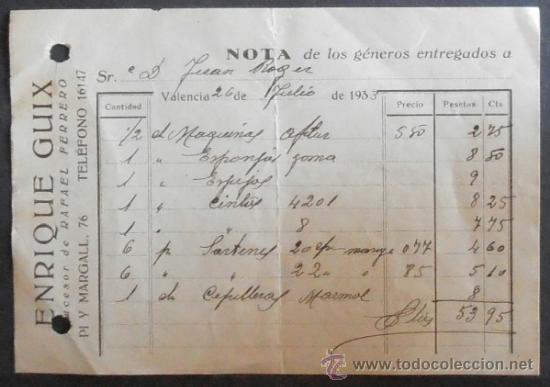 ENRIQUE GUIX
Sucesor de RAFAEL FERRERO
PI Y MARGALL, 76 TELÉFONO 16147
NOTA de los géneros entregados a
Sr. D. Juan Roger
Valencia 26 de Julio de 1933
Cantidad Precio Pesetas Cts
1/2 d Maquinas afeitar 5 50 2 75
1 " Esponjas goma 8 80
1 " Espejos 9
1 " Cintas 4201 8 25
1 " " 8 7 75
6 p Sartenes 20 c/m mango 0 77 4 60
6 " " 22 " " 85 5 10
1 d Cepilleras Marmol 8
Ptas 53 95
todocoleccion
www.todocoleccion.net